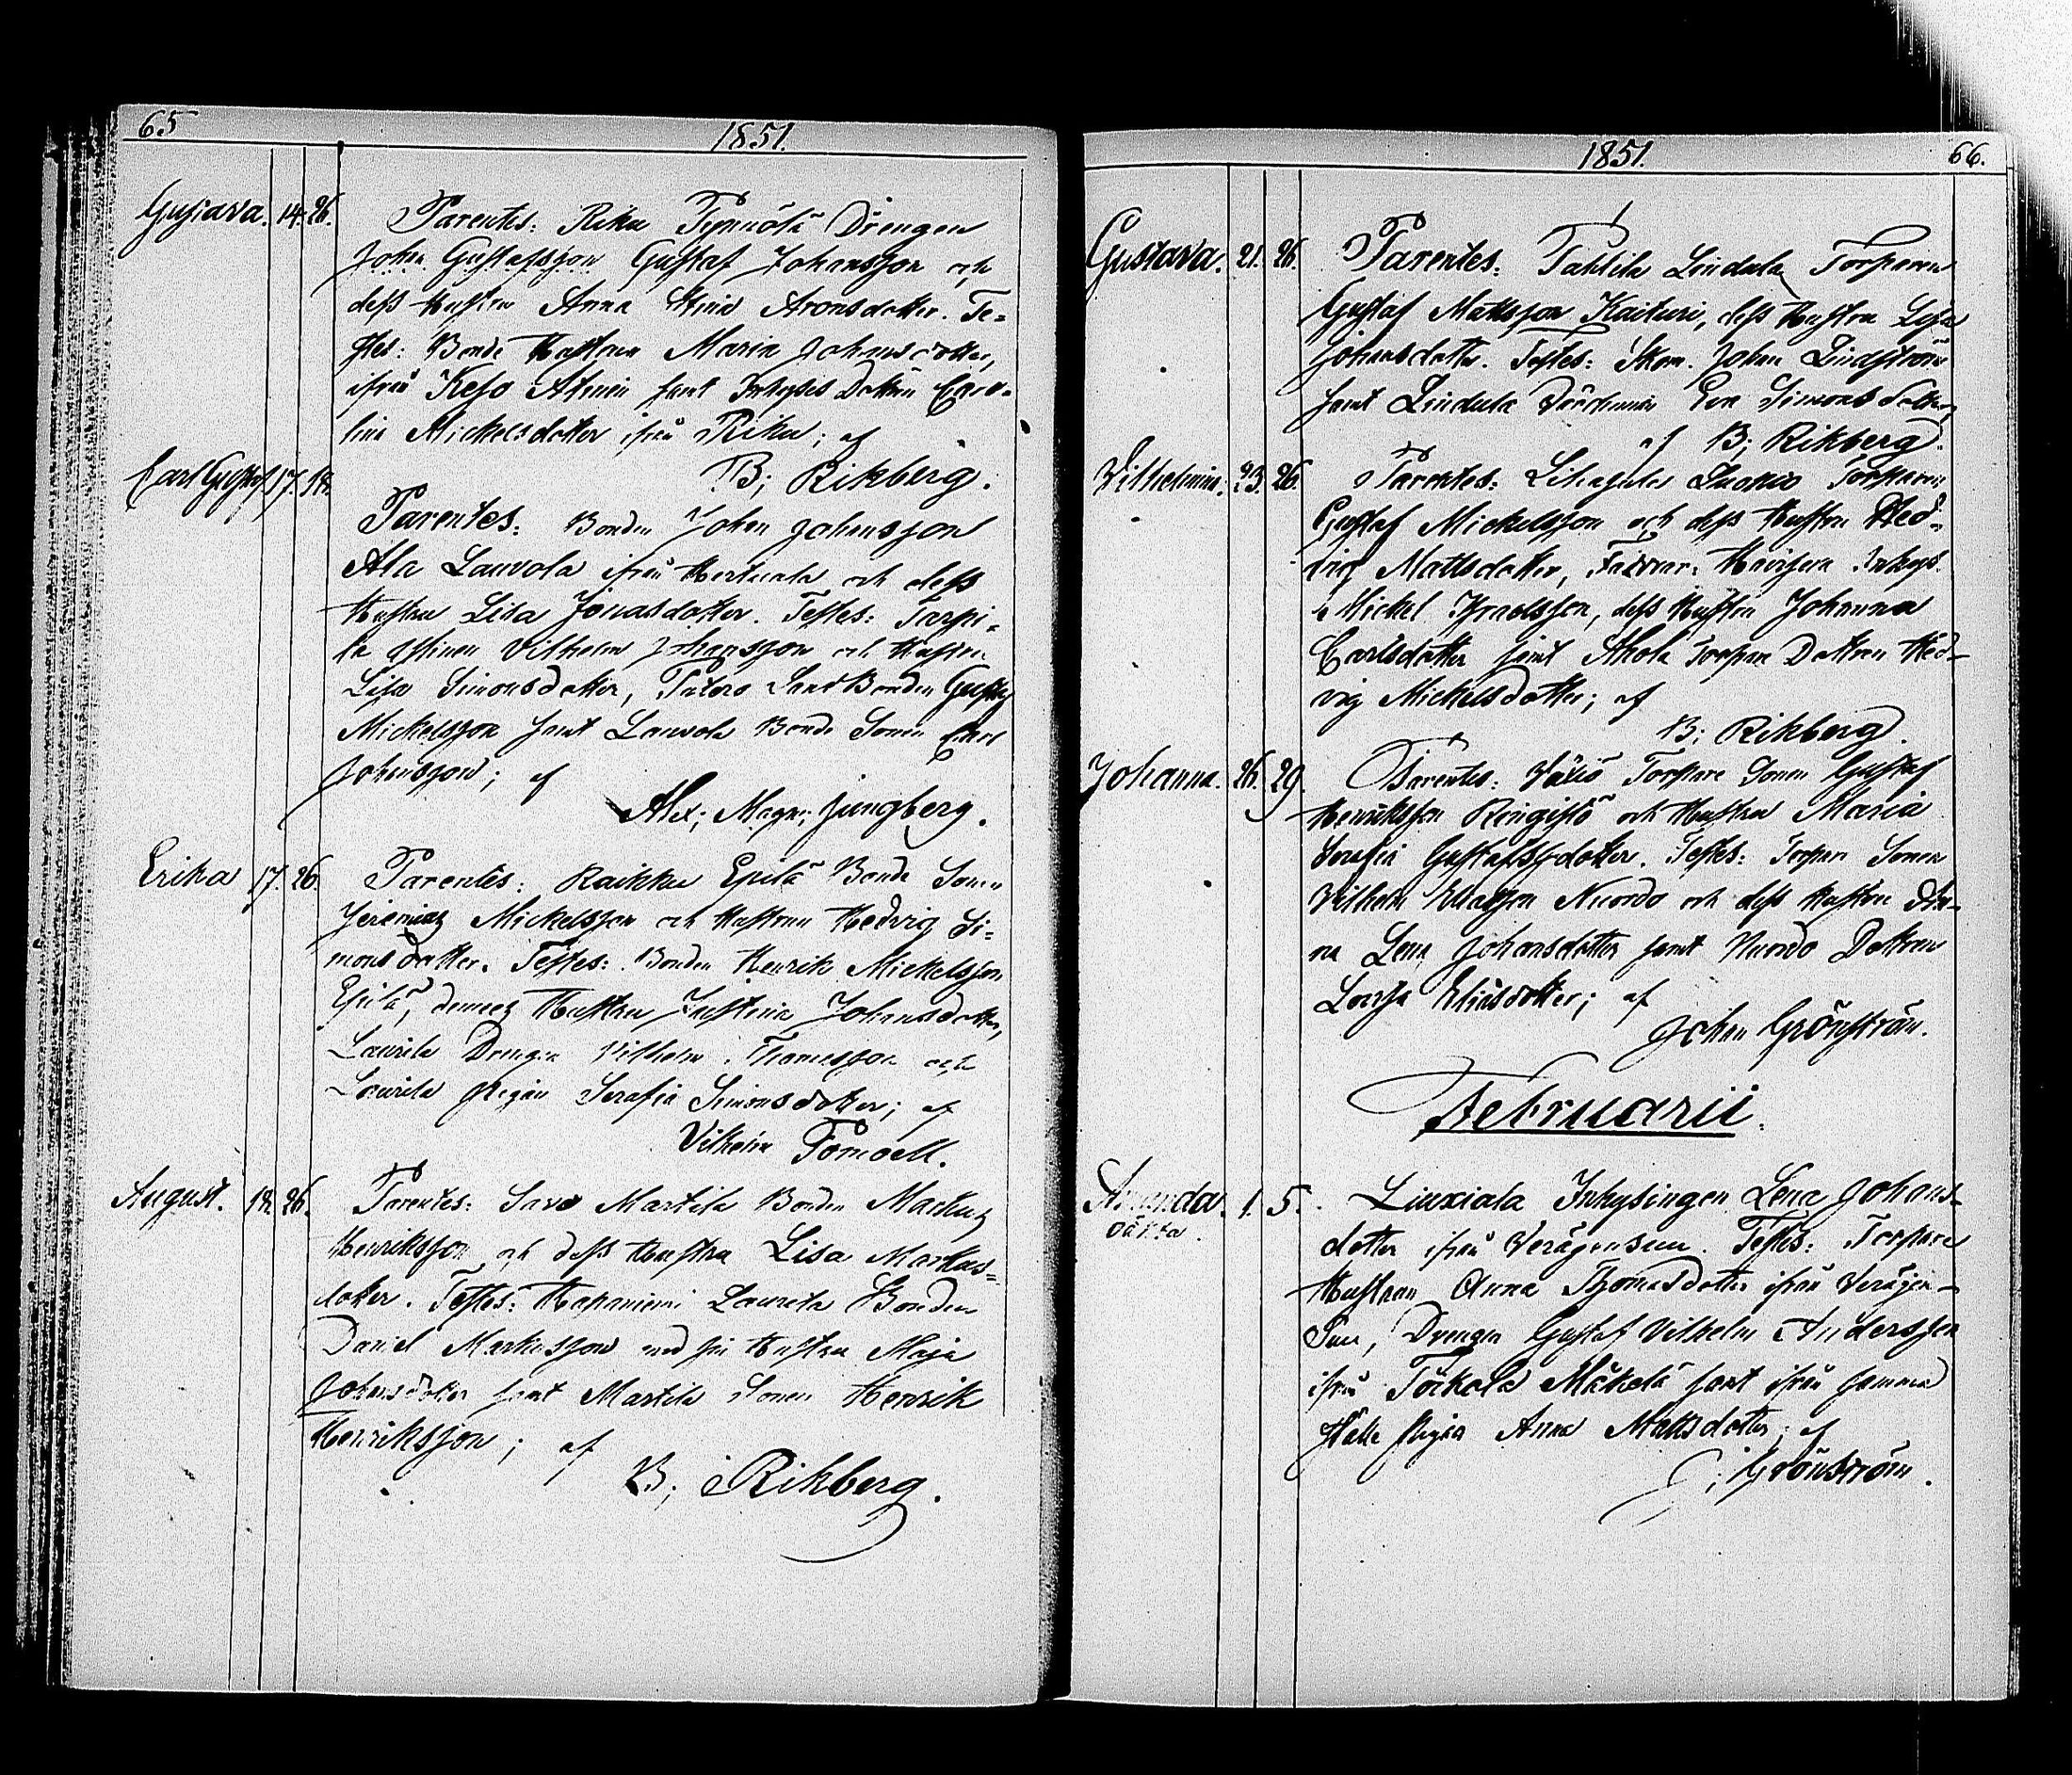 65 1851.
Gustava. 14. 26. Parentes: Riku Pynnölä Drengen
Johan Gustafsson Gustaf Johansson och
dess Hustru Anna Stina Aronsdotter. Te=
stes: Bonde Hustrun Maria Johansdotter,
ifrån Keso Alinen samt Inhyses Dottren Caro-
lina Mickelsdotter ifrån Riku; af
B; Rikberg.
Carl Gustaf 17. 18.
Parentes: Bonden Johan Johansson
Ala Lauvola ifrån Hertuala och dess
Hustru Lisa Jonasdotter. Testes: Tarpi=
la Vilhelm Johansson och Hustru
Lisa Simonsdotter, Bonden Gustaf
Mickelsson samt Lauvola Bonde Sonen Carl
Johansson; af
Alex; Magn; Ljungberg.
Erika 17. 26. Parentes: Raikku Epilä Bonde Sonen
Jeremias Mickelsson och Hustrun Hedvig Si=
monsdotter. Testes: Bonden Henrik Mickelsson
Epilä, dennes Hustru Justina Johansdotter,
Laurila Drengen Vilhelm Thomasson och
Laurila Pigan Serafia Simonsdotter; af
Vilhelm
August. 18. 26. Parentes: Savo Martila Bonden Markus
Henriksson och dess Hustru Lisa Markus=
dotter. Testes: Hapaniemi Laurila Bonden
Daniel Markusson med sin Hustru Maja
Johansdotter samt Martila Sonen Henrik
Henriksson; af
B; Rikberg.
1851. 66.
Gustava. 21. 26. Parentes: Pahlila Lindula Torparen
Gustaf Mattsson Kaituri, dess Hustru Lisa
Johansdotter. Testes: Skom. Johan Lindström
samt Lindula Eva Simonsdotter,
af B; Rikberg.
Vilhelmina. 23. 26. Parentes: Torparen
Gustaf Mickelsson och dess Hustru Hed-
vig Mattsdotter, Inhys.
Mickel Israelsson, dess Hustru Johanna
Carlsdotter samt Ahola Torpare Dottren Hed-
vig Mickelsdotter; af
B; Rikberg.
Johanna. 26. 29. Parentes: Torpare Sonen Gustaf
Henriksson Ringistö och Hustru Maria
Serafia Gustafsdotter. Testes: Torpare Sonen
Vilhelm Eliasson Nuordo och dess Hustru An-
na Lena Johansdotter samt Nuordo Dottren
Lovisa Eliasdotter; af
Johan Grönström.
Februarii.
Amanda. 1. 5. Liuxiala Inhysingen Lena Johans-
oäkta.
dotter ifrån Verägensuu. Testes: Torpare
Hustrun Anna Thomasdotter ifrån Verägen-
suu, Drengen Gustaf Vilhelm Andersson
ifrån Töckola Mäkelä samt ifrån samma
ställe Pigan Anna Mattsdotter; af
J; Grönström.